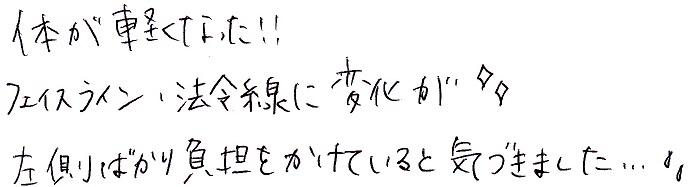 体が軽くなった!!
フェイスライン、法令線に変化が✧✧
左側ばかり負担をかけていると気づきました…〃